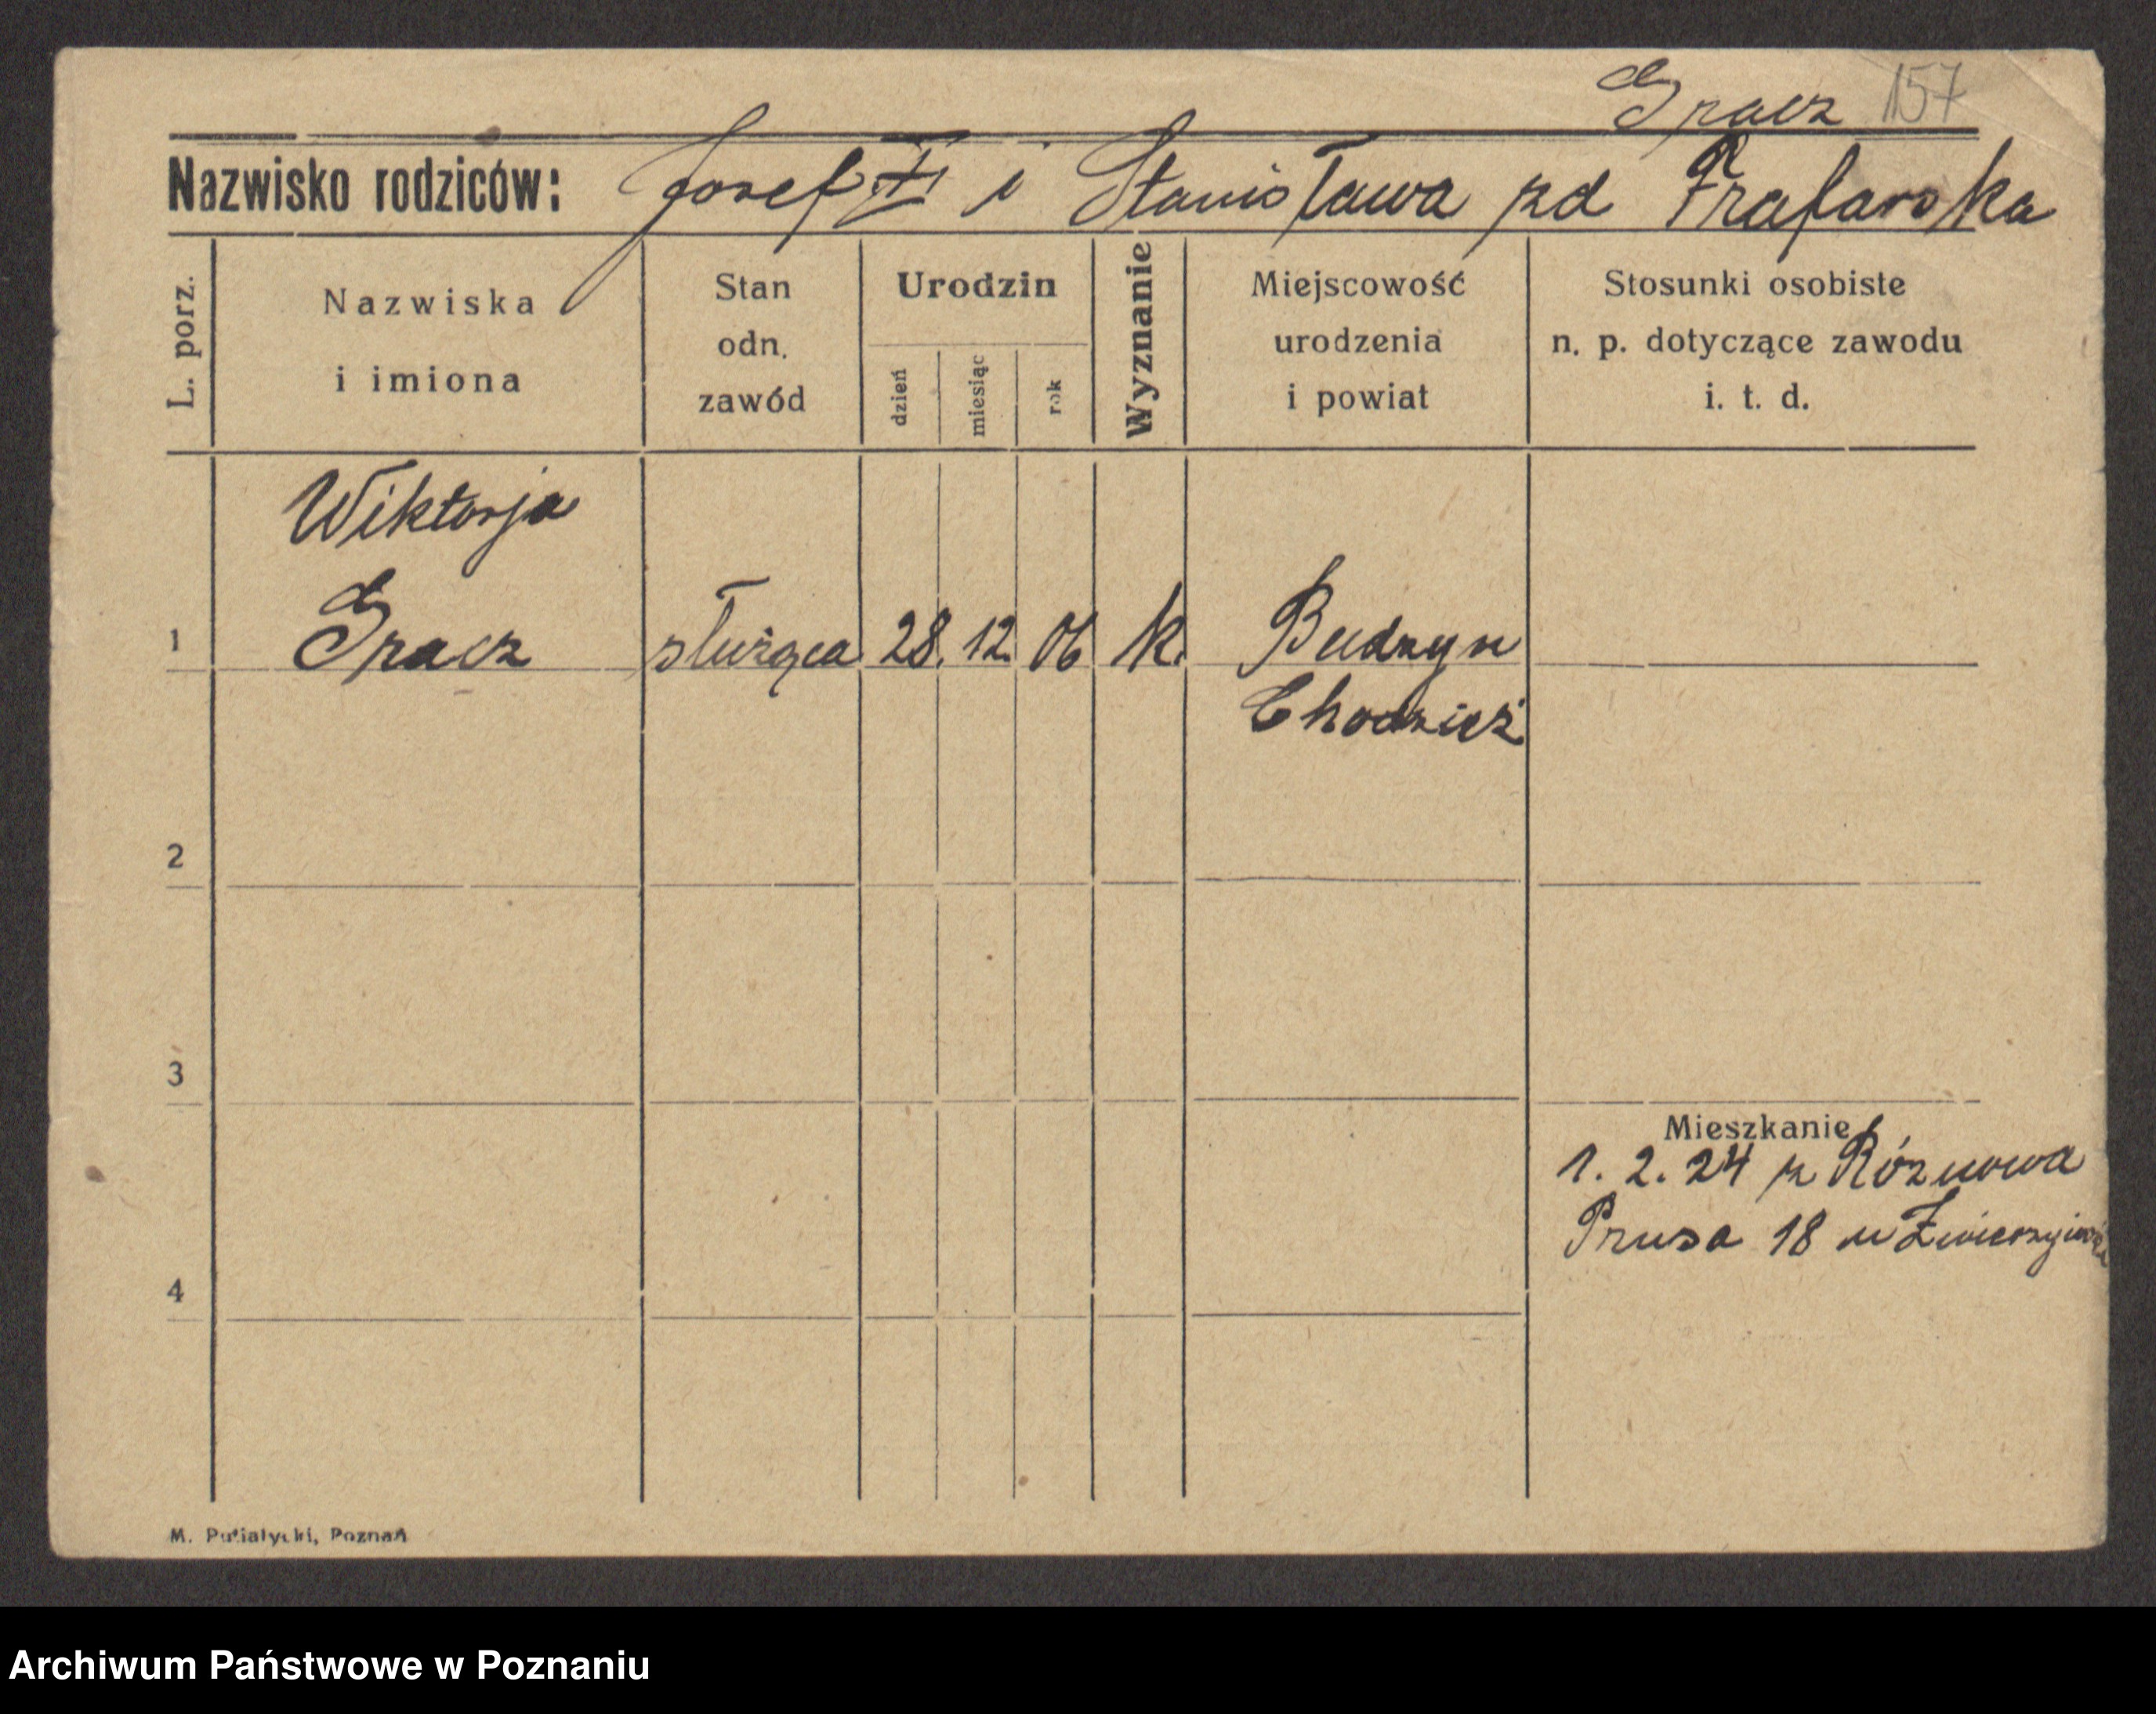 Gracz 157
Nazwisko rodziców: Josef i Stanisława zd
L. porz.
Nazwiska
i imiona
Stan
odn.
zawód
Urodzin
dzień
miesiąc
rok
Wyznanie
Miejscowość
urodzenia
i powiat
Stosunki osobiste
n. p. dotyczące zawodu
i. t. d.
Wiktorja
1 Gracz służąca 28. 12. 06 k. Budzyn
Chodzież
2
3
Mieszkanie
1. 2. 24 z Róznowa
Prusa 18 u
4
M. Putiatycki, Poznań
Archiwum Państwowe w Poznaniu